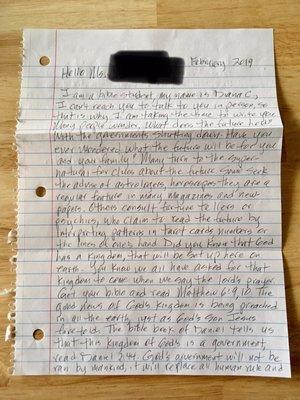 February 2019
Hello Ms.
I am a bible student, my name is Diana C,
I can't reach you to talk to you in person, so
that's why I am taking the time to write you
Many people wonder, What does the future hold?
With the governments shutting down. Have you
ever wondered what the future will be for you
and you family? Many turn to the super-
natural for clues about the future some seek
the advise of astrologers, horoscopes they are a
regular feature in many magazines and news
papers. Others consult fortune tellers or
psychics, who claim to read the future by
interpreting patterns in tarot cards numbers or
the lines of one's hand. Did you know that God
has a Kingdom, that will be set up here on
earth. You know we all have asked for that
Kingdom to come when we say the lord's prayer.
Get your bible and read Matthew 6:9,10. The
Good news of God's Kingdom is being preached
in all the earth, just as God's son Jesus
foretold. The bible book of Daniel tells us
that this kingdom of God is a government,
read Daniel 2:44. God's government will not be
ran by mankind, it will replace all human rule and